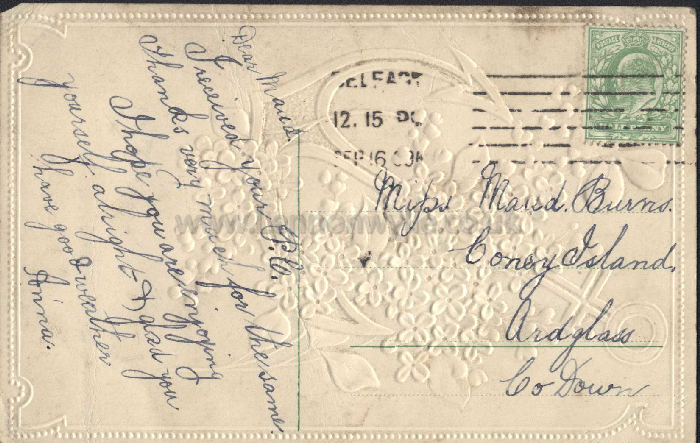 Dear Maud.
I received your P.C.
Thanks very much for the same.
I hope you are enjoying
yourself alright & glad you
have good weather
Anna.
BELFAST
12.15 P
SEP 16
Miss Maud. Burns.
Coney Island.
Ardglass
Co Down